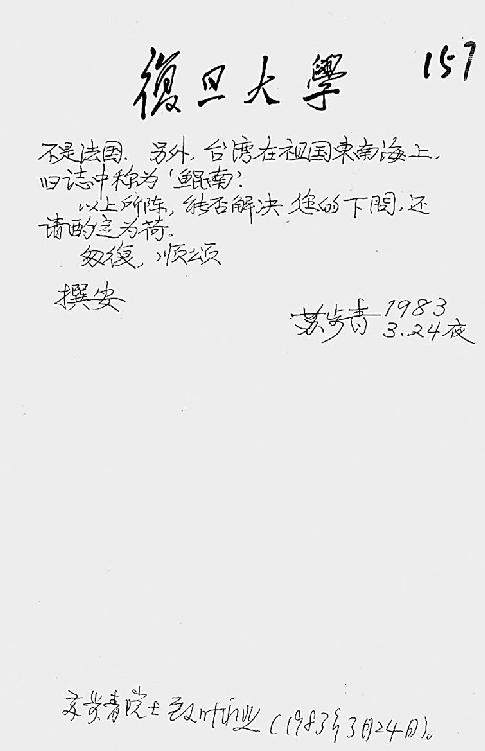 復旦大學
157
不是法国. 另外, 台湾在祖国東南海上,
旧誌中称为'鲲南'.
以上所陈, 能否解决您的下問, 还
请酌定为荷.
匆復, 順頌
撰安
苏步青 1983
3.24夜
苏步青院士致叶永烈 (1983年3月24日)。